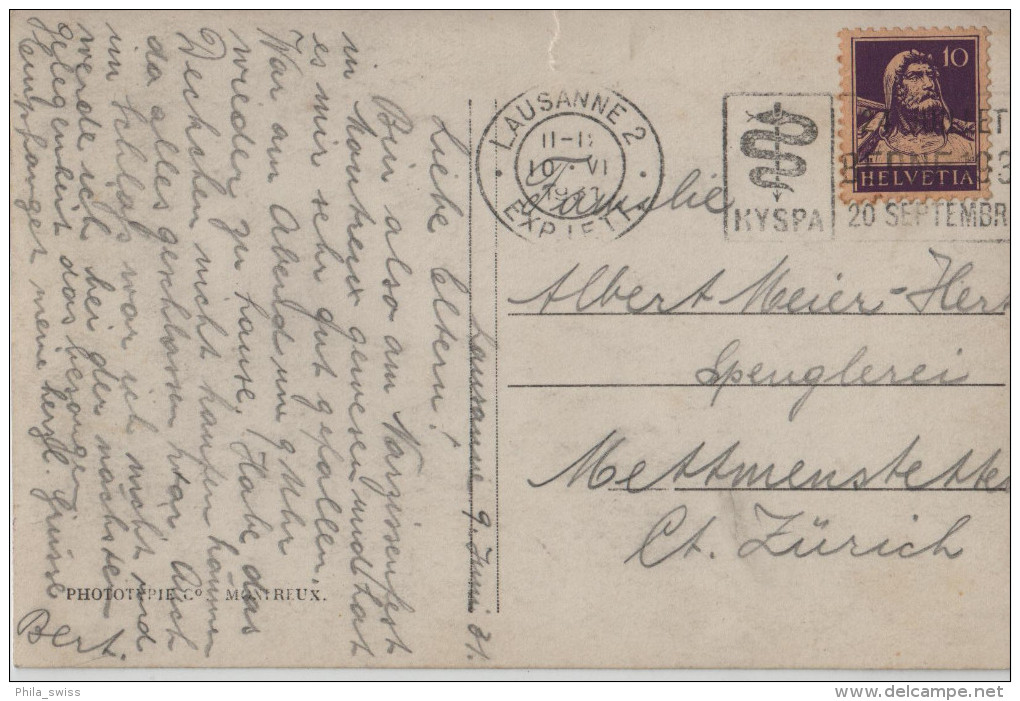 Lausanne 9. Juni 31.
Liebe Eltern!
Bin also am Narzissenfest
in Montreux gewesen und hat
es mir sehr gut gefallen.
War am Abend um 9 Uhr
wieder zu hause. Habe das
Deckchen nicht kaufen können
da alles geschlossen war. Auch
im Schlafs war ich nicht und
werde ich bei der nächsten
gelegenheit das besorgen
Heimpfanget meine herzl. Grüsse
Bert.
PHOTOTYPIE Co. MONTREUX.
LAUSANNE 2
10 VI
1931
EXP. LETT.
KYSPA
20 SEPTEMBR
10
HELVETIA
Familie
Albert Meier-Her
Spenglerei
Mettmenstette
Ct. Zürich
Phila_swiss
delcampe.net